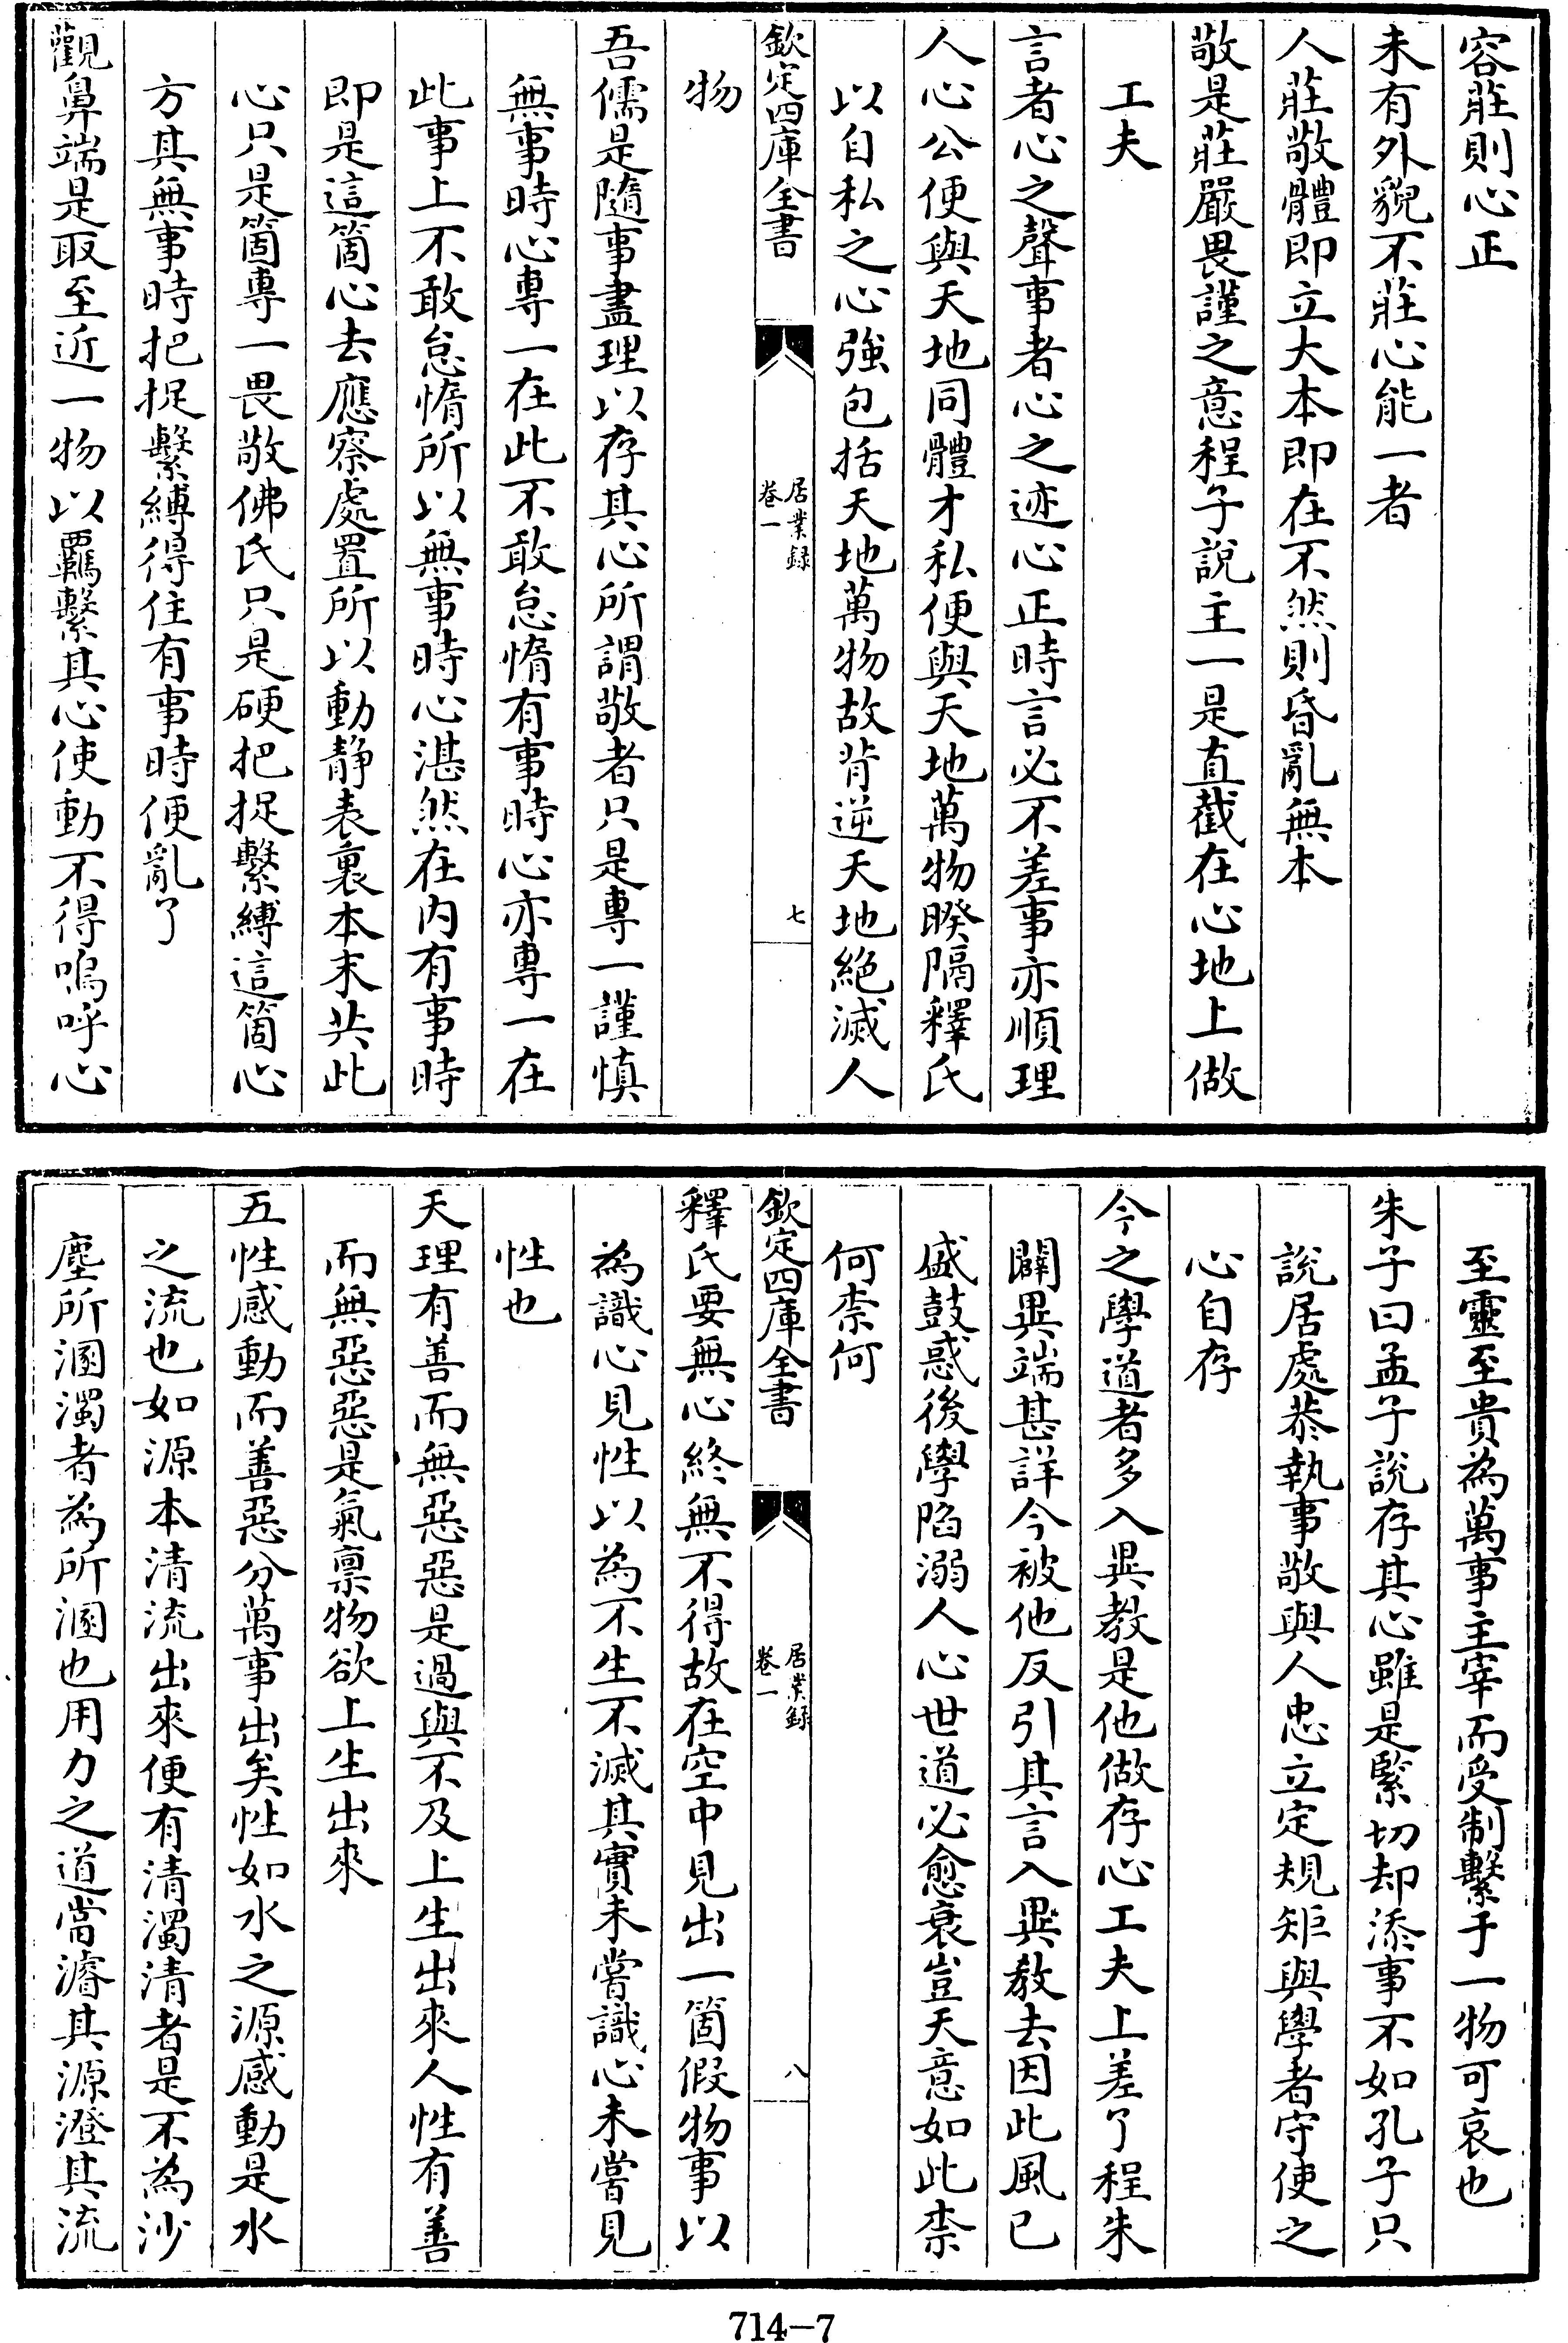 容莊則心正
未有外貌不莊心能一者
人莊敬體即立大本即在不然則昏亂無本
敬是莊嚴畏謹之意程子說主一是直截在心地上做
工夫
言者心之聲事者心之迹心正時言必不差事亦順理
人心公便與天地同體才私便與天地萬物暌隔釋氏
以自私之心強包括天地萬物故背逆天地絶滅人
欽定四庫全書
居業録
卷一
七
物
吾儒是隨事盡理以存其心所謂敬者只是專一謹慎
無事時心專一在此不敢怠惰有事時心亦專一在
此事上不敢怠惰所以無事時心湛然在内有事時
即是這箇心去應察處置所以動静表裏本末共此
心只是箇專一畏敬佛氏只是硬把捉繫縛這箇心
方其無事時把捉繫縛得住有事時便亂了
觀鼻端是取至近一物以羈繫其心使動不得嗚呼心
至靈至貴為萬事主宰而受制繫于一物可哀也
朱子曰孟子說存其心雖是緊切却添事不如孔子只
說居處恭執事敬與人忠立定規矩與學者守使之
心自存
今之學道者多入異教是他做存心工夫上差了程朱
闢異端甚詳今被他反引其言入異教去因此風已
盛鼓惑後學陷溺人心世道必愈衰豈天意如此柰
何柰何
欽定四庫全書
居業録
卷一
八
釋氏要無心終無不得故在空中見出一箇假物事以
為識心見性以為不生不滅其實未嘗識心未嘗見
性也
天理有善而無惡惡是過與不及上生出來人性有善
而無惡惡是氣稟物欲上生出來
五性感動而善惡分萬事出矣性如水之源感動是水
之流也如源本清流出來便有清濁清者是不為沙
塵所溷濁者為所溷也用力之道當濬其源澄其流
714—7